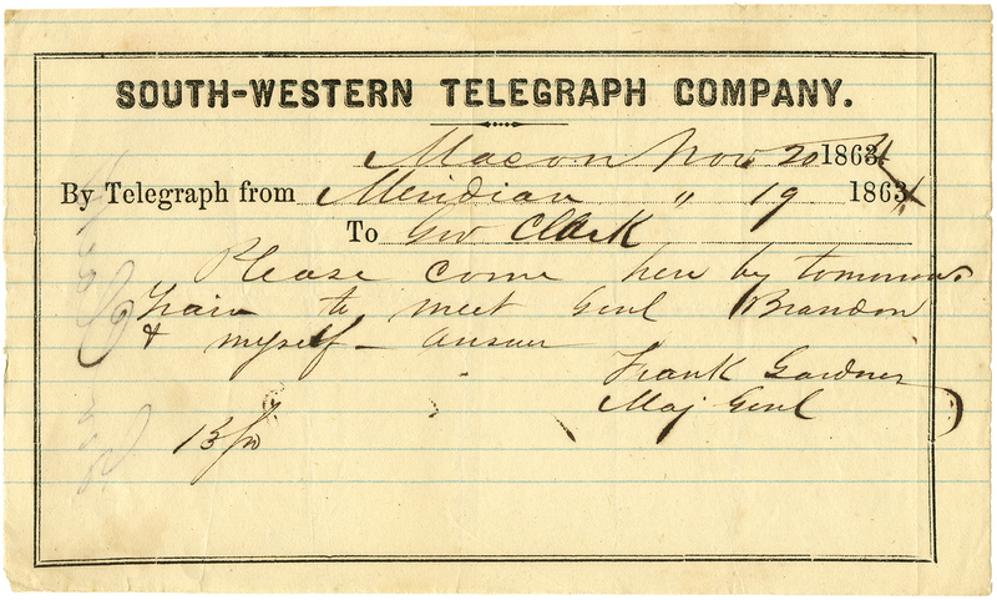 SOUTH-WESTERN TELEGRAPH COMPANY.
Macon Nov 20 1864
By Telegraph from Meridian " 19 1864
To Gov Clark
Please come here by tomorrows
train to meet Genl Brandon
& myself - answer
Frank Gardner
Maj Genl